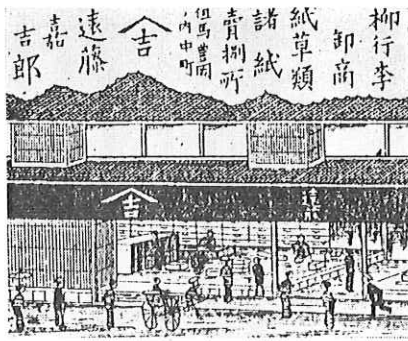 柳行李
紙草類
卸商
諸紙
賣捌所
但馬豊岡
内中町
吉
遠藤
嘉
吉郎
吉